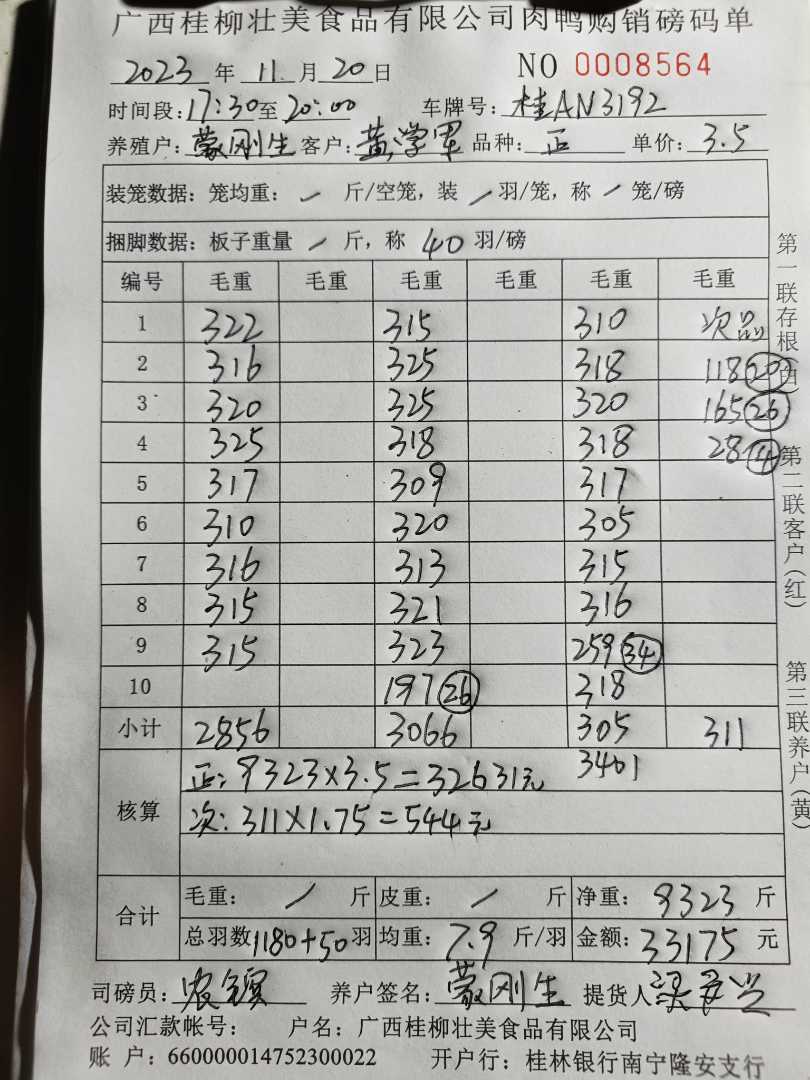 广西桂柳壮美食品有限公司肉鸭购销磅码单
2023 年 11 月 20 日 NO 0008564
时间段: 17:30 至 20:00 车牌号: 桂AN3192
养殖户: 蒙刚生 客户: 黄学军 品种: 正 单价: 3.5
装笼数据: 笼均重: / 斤/空笼, 装 / 羽/笼, 称 / 笼/磅
捆脚数据: 板子重量 / 斤, 称 40 羽/磅
编号 毛重 毛重 毛重 毛重 毛重 毛重
1 322 315 310 次品
2 316 325 318 118 20
3 320 325 320 165 26
4 325 318 318 28 4
5 317 309 317
6 310 320 305
7 316 313 315
8 315 321 316
9 315 323 259 34
10 197 26 318
小计 2856 3066 305 311
3401
核算 正: 9323×3.5=32631元
次: 311×1.75=544元
合计 毛重: / 斤 皮重: / 斤 净重: 9323 斤
总羽数 1180+50 羽 均重: 7.9 斤/羽 金额: 33175 元
司磅员: 养户签名: 蒙刚生 提货人
公司汇款帐号: 户名: 广西桂柳壮美食品有限公司
账 户: 660000014752300022 开户行: 桂林银行南宁隆安支行
第一联存根(白) 第二联客户(红) 第三联养户(黄)